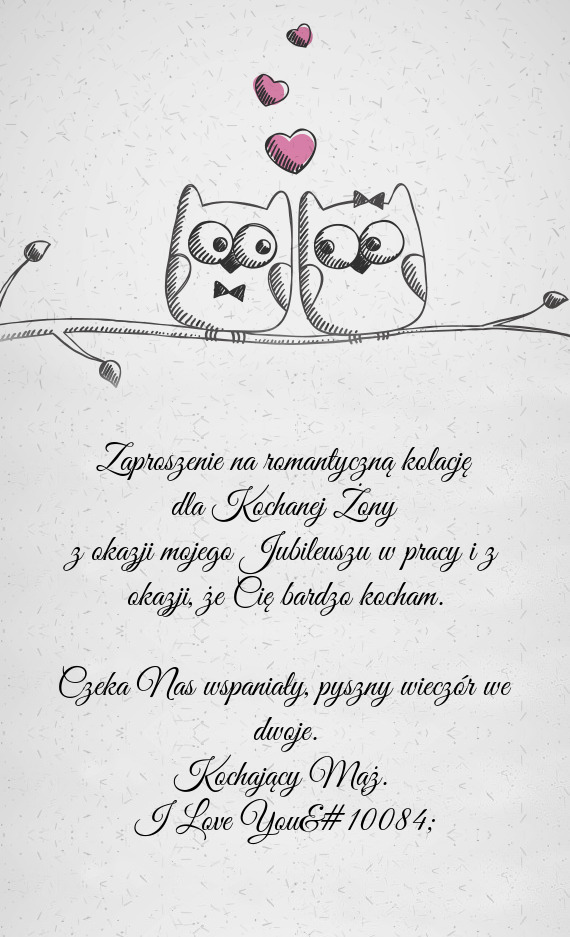 Zaproszenie na romantyczną kolację
dla Kochanej Żony
z okazji mojego Jubileuszu w pracy i z
okazji, że Cię bardzo kocham.
Czeka Nas wspaniały, pyszny wieczór we
dwoje.
Kochający Mąż.
I Love You&#10084;